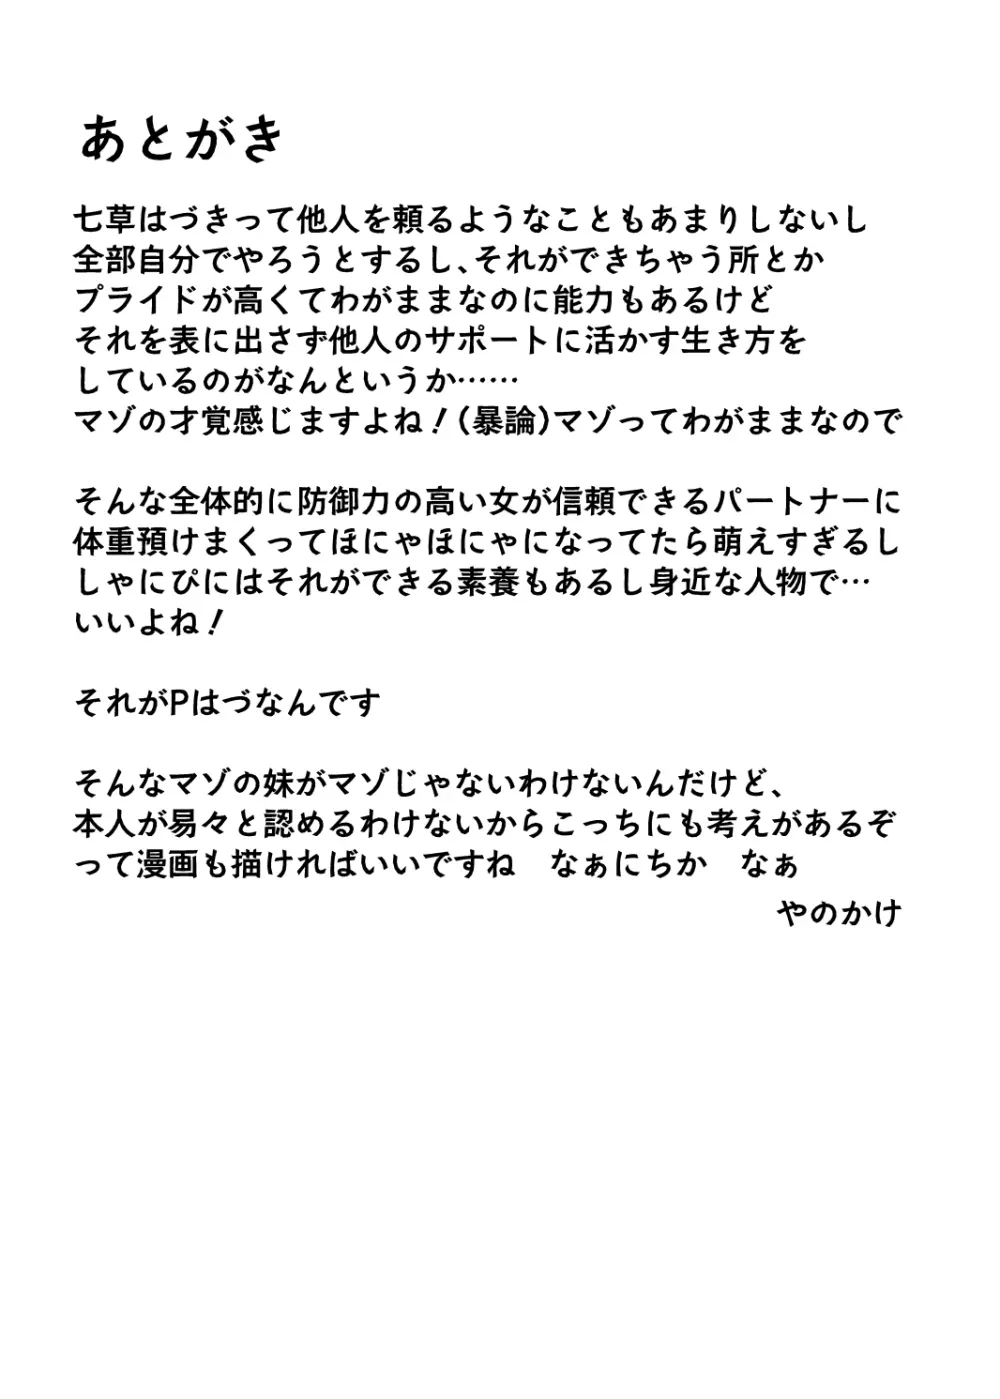 あとがき
七草はづきって他人を頼るようなこともあまりしないし
全部自分でやろうとするし、それができちゃう所とか
プライドが高くてわがままなのに能力もあるけど
それを表に出さず他人のサポートに活かす生き方を
しているのがなんというか……
マゾの才覚感じますよね！(暴論)マゾってわがままなので
そんな全体的に防御力の高い女が信頼できるパートナーに
体重預けまくってほにゃほにゃになってたら萌えすぎるし
しゃにぴにはそれができる素養もあるし身近な人物で…
いいよね！
それがPはづなんです
そんなマゾの妹がマゾじゃないわけないんだけど、
本人が易々と認めるわけないからこっちにも考えがあるぞ
って漫画も描ければいいですね　なぁにちか　なぁ
やのかけ